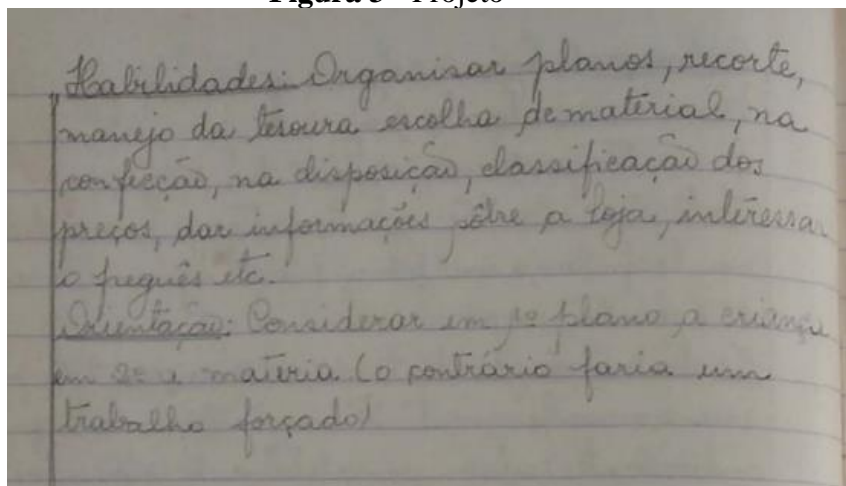 Figura 3 - Projeto
Habilidades: Organisar planos, recorte,
manejo da tesoura escolha de material, na
confecção, na disposição, classificação dos
preços, dar informações sôbre a loja, interessar
o freguês etc.
Orientação: Considerar em 1º plano a criança
em 2º a materia (o contrário faria um
trabalho forçado)